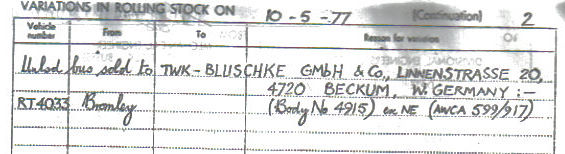 VARIATIONS IN ROLLING STOCK ON 10-5-77 (Continuation) 2
Vehicle number From To Reason for variation
Unlsd bus sold to TWK-BLUSCHKE GMbH & Co., LINNENSTRASSE 20,
4720 BECKUM, W. GERMANY :—
RT4033 Bromley (Body No 4915) ex NE (AWCA 599/917)